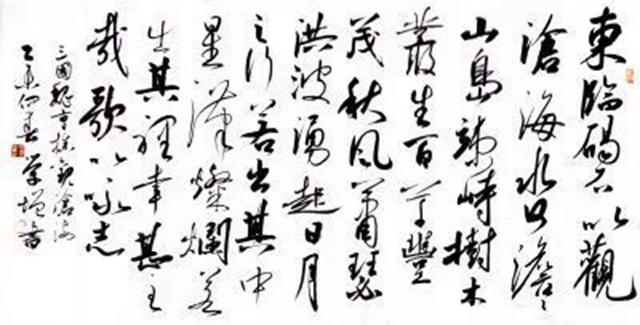 東臨碣石以觀
滄海水何澹々
山島竦峙樹木
叢生百草豐
茂秋風蕭瑟
洪波湧起日月
之行若出其中
星漢燦爛若
出其裡幸甚至
哉歌以詠志
三國魏曹操觀滄海
乙未仲春学增書